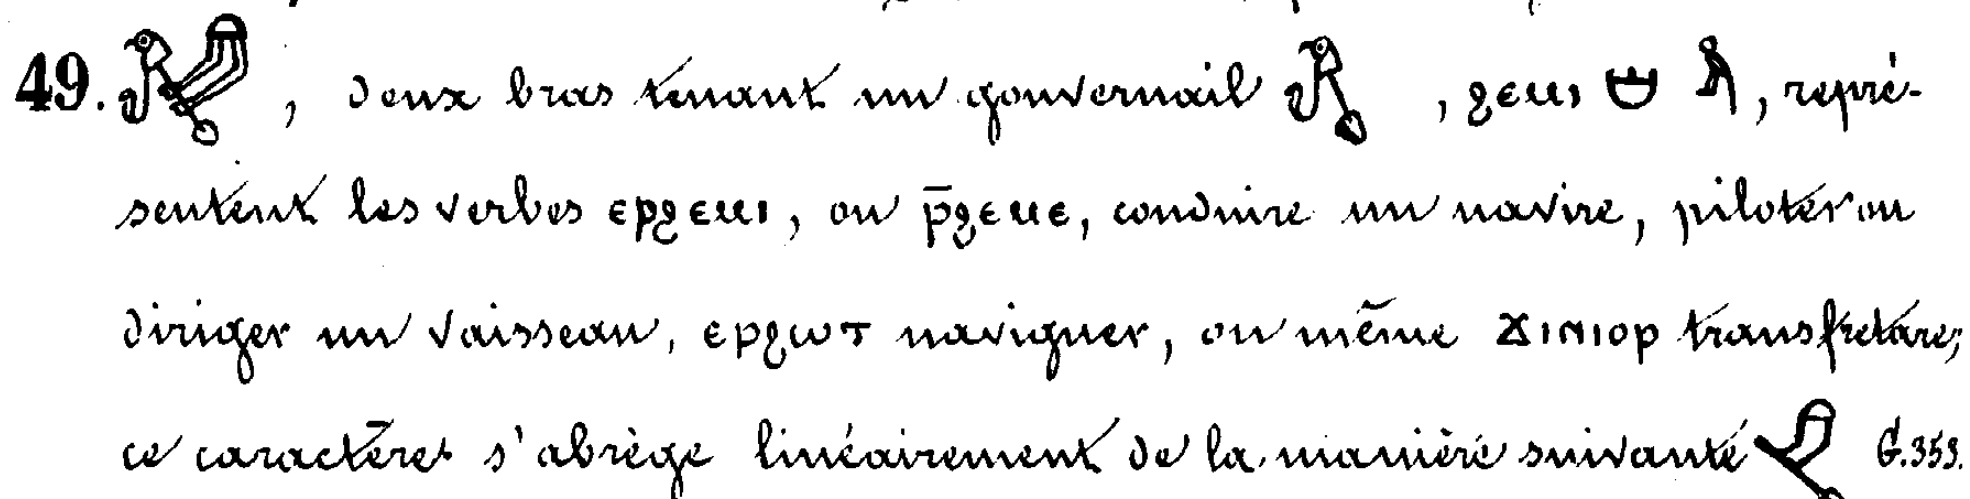 49. , deux bras tenant un gouvernail , ϩⲉⲙⲓ , repré-
sentent les verbes ⲉⲣϩⲉⲙⲓ, ou ⲣ̄ϩⲉⲙⲉ, conduire un navire, piloter ou
diriger un vaisseau, ⲉⲣϩⲱⲧ naviguer, ou même ϫⲓⲛⲓⲟⲣ transfretare;
ce caractère s'abrège linéairement de la manière suivante G.353.